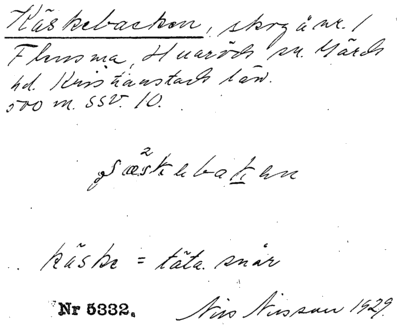 Käskebacken, skogå nr. 1
Flinsma, Huaröds sn. Gärds
hd. Kristianstads län.
500 m. SSV. 10.
käske = täta snår
Nr 5332. Nils Nilsson 1929.